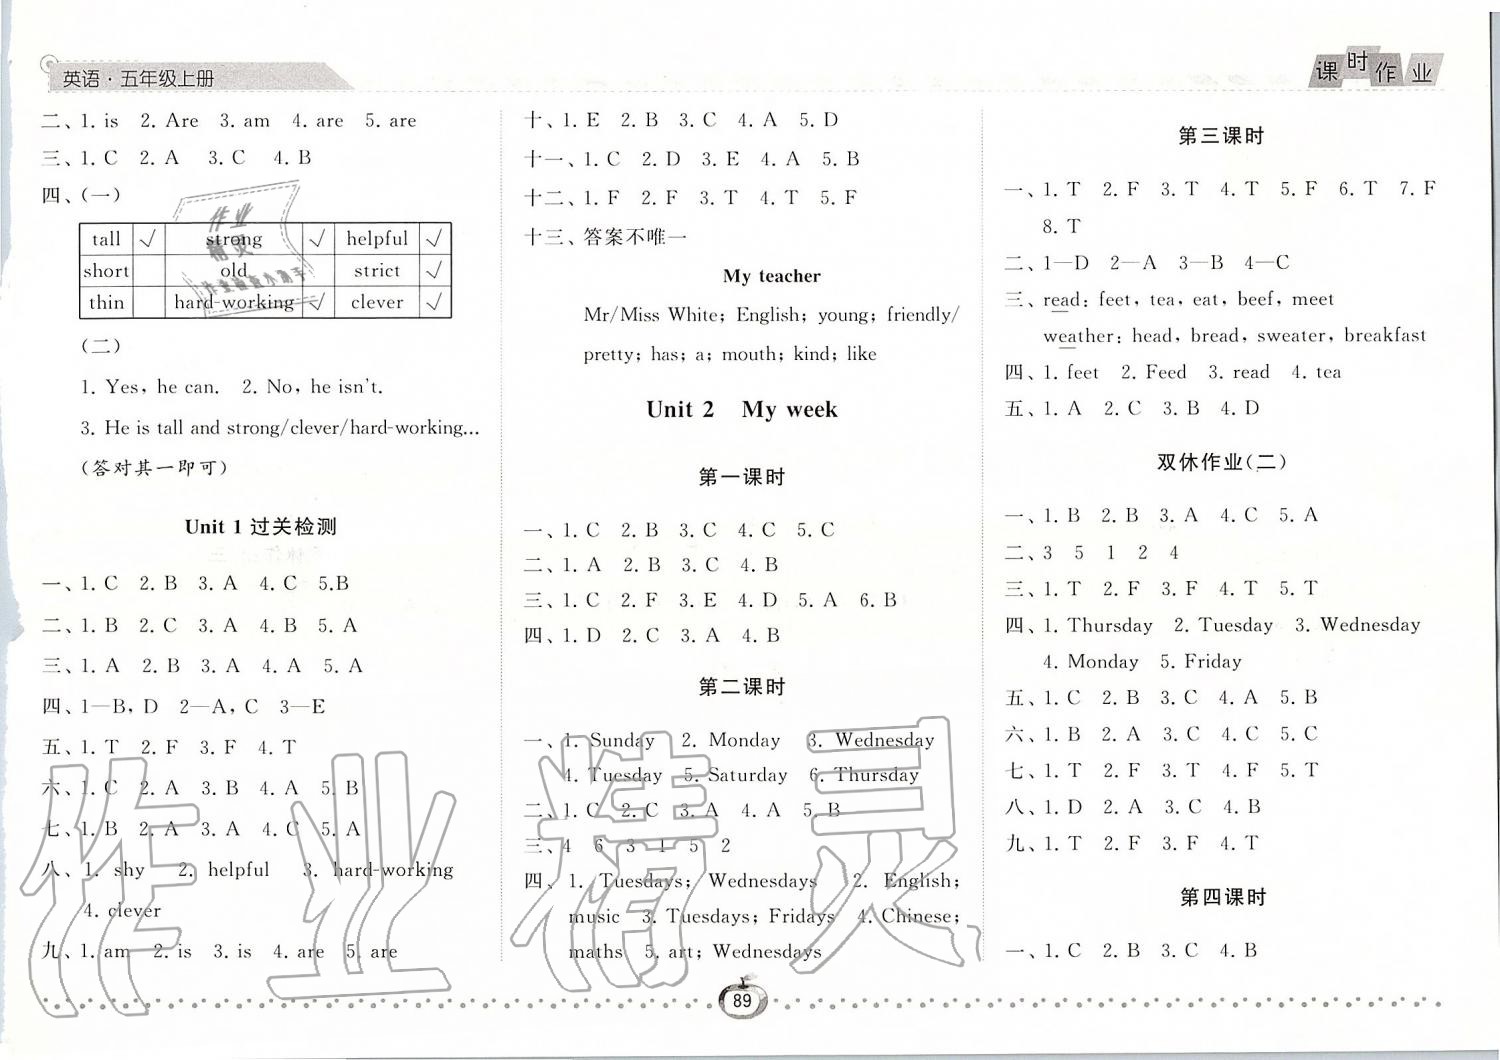 英语·五年级上册
课时作业
二、1. is 2. Are 3. am 4. are 5. are
三、1. C 2. A 3. C 4. B
四、(一)
tall √ strong √ helpful √
short old strict √
thin hard-working √ clever √
(二)
1. Yes, he can. 2. No, he isn't.
3. He is tall and strong/clever/hard-working...
(答对其一即可)
Unit 1 过关检测
一、1. C 2. B 3. A 4. C 5.B
二、1. B 2. C 3. A 4. B 5. A
三、1. A 2. B 3. A 4. A 5. A
四、1—B, D 2—A, C 3—E
五、1. T 2. F 3. F 4. T
六、1. C 2. A 3. B 4. A 5. B
七、1. B 2. A 3. A 4. C 5. A
八、1. shy 2. helpful 3. hard-working
4. clever
九、1. am 2. is 3. is 4. are 5. are
十、1. E 2. B 3. C 4. A 5. D
十一、1. C 2. D 3. E 4. A 5. B
十二、1. F 2. F 3. T 4. T 5. F
十三、答案不唯一
My teacher
Mr/Miss White; English; young; friendly/
pretty; has; a; mouth; kind; like
Unit 2 My week
第一课时
一、1. C 2. B 3. C 4. C 5. C
二、1. A 2. B 3. C 4. B
三、1. C 2. F 3. E 4. D 5. A 6. B
四、1. D 2. C 3. A 4. B
第二课时
一、1. Sunday 2. Monday 3. Wednesday
4. Tuesday 5. Saturday 6. Thursday
二、1. C 2. C 3. A 4. A 5. B
三、4 6 3 1 5 2
四、1. Tuesdays; Wednesdays 2. English;
music 3. Tuesdays; Fridays 4. Chinese;
maths 5. art; Wednesdays
第三课时
一、1. T 2. F 3. T 4. T 5. F 6. T 7. F
8. T
二、1—D 2—A 3—B 4—C
三、read: feet, tea, eat, beef, meet
weather: head, bread, sweater, breakfast
四、1. feet 2. Feed 3. read 4. tea
五、1. A 2. C 3. B 4. D
双休作业(二)
一、1. B 2. B 3. A 4. C 5. A
二、3 5 1 2 4
三、1. T 2. F 3. F 4. T 5. T
四、1. Thursday 2. Tuesday 3. Wednesday
4. Monday 5. Friday
五、1. C 2. B 3. C 4. A 5. B
六、1. B 2. A 3. C 4. C 5. C
七、1. T 2. F 3. T 4. F 5. T
八、1. D 2. A 3. C 4. B
九、1. T 2. F 3. F 4. T
第四课时
一、1. C 2. B 3. C 4. B
89
作业精灵